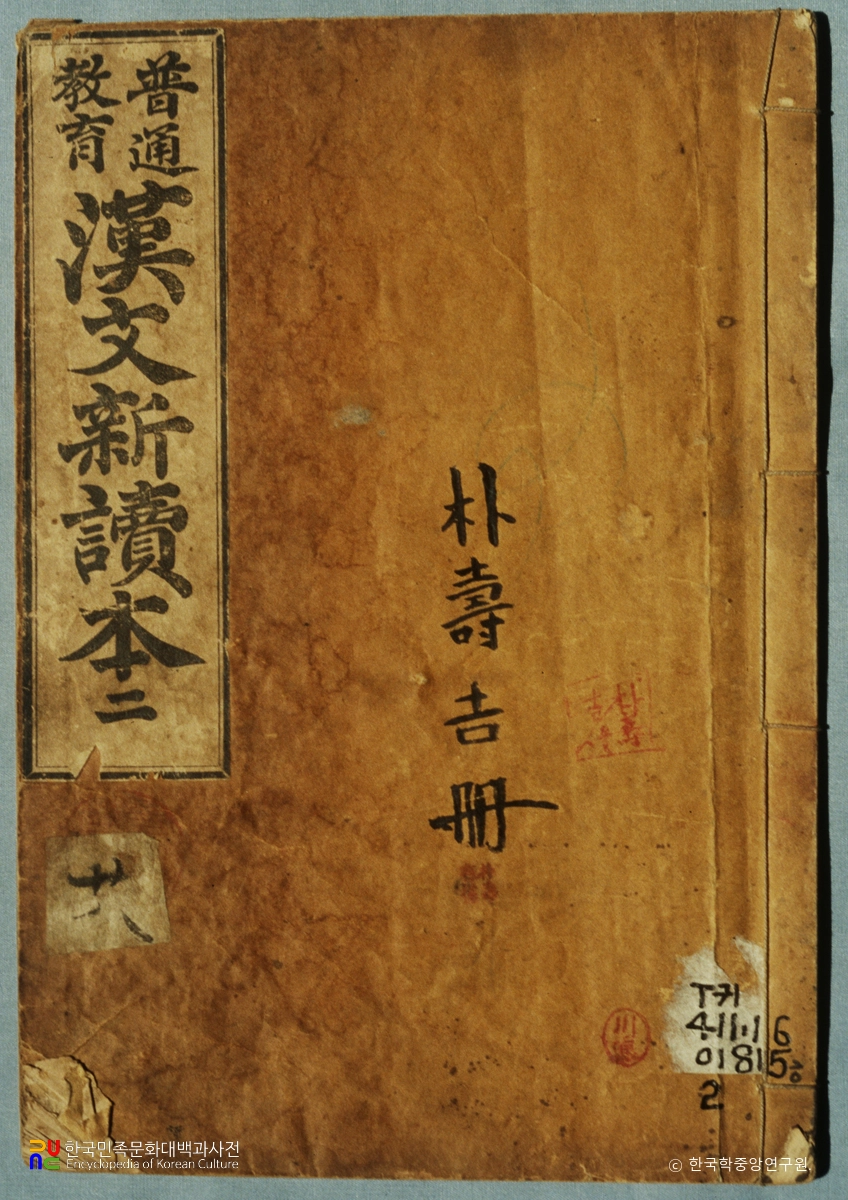 普通
教育
漢文新讀本二
朴壽吉冊
廿八
T귀
4-11.1 6
0181 5
2
한국민족문화대백과사전
Encyclopedia of Korean Culture
© 한국학중앙연구원